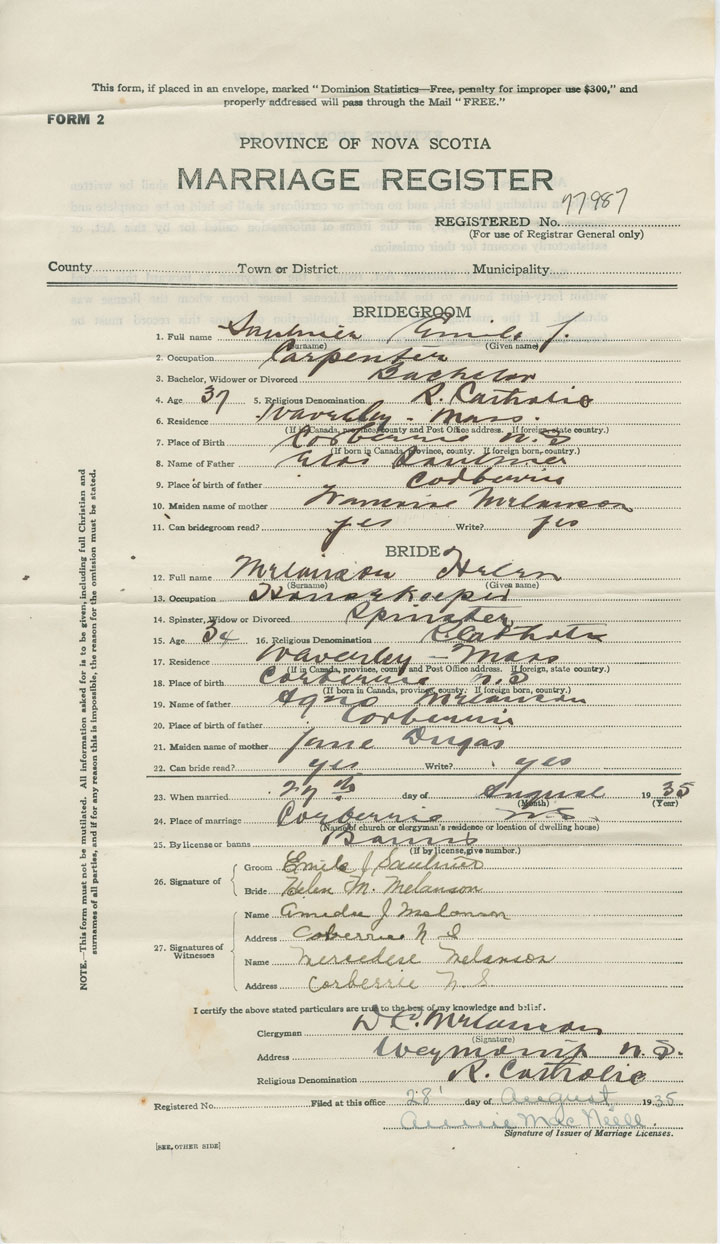 This form, if placed in an envelope, marked "Dominion Statistics—Free, penalty for improper use $300," and
properly addressed will pass through the Mail "FREE."
FORM 2
PROVINCE OF NOVA SCOTIA
MARRIAGE REGISTER
REGISTERED No. 77987
(For use of Registrar General only)
County Town or District Municipality
BRIDEGROOM
1. Full name Saulnier Emile J.
(Surname) (Given name)
2. Occupation Carpenter
3. Bachelor, Widower or Divorced Bachelor
4. Age 37 5. Religious Denomination R. Catholic
6. Residence Waverley - Mass.
(If in Canada, province, county and Post Office address. If foreign, state country.)
7. Place of Birth Corberrie N.S
(If born in Canada, province, county. If foreign born, country.)
8. Name of Father Saulnier
9. Place of birth of father Corberrie
10. Maiden name of mother Melanson
11. Can bridegroom read? yes Write? yes
BRIDE
12. Full name Melanson Helen
(Surname) (Given name)
13. Occupation Housekeeper
14. Spinster, Widow or Divorced Spinster
15. Age 34 16. Religious Denomination R Catholic
17. Residence Waverley - Mass
(If in Canada, province, county and Post Office address. If foreign, state country.)
18. Place of birth Corberrie N.S
(If born in Canada, province, county. If foreign born, country.)
19. Name of father Melanson
20. Place of birth of father Corberrie
21. Maiden name of mother Jane Dugas
22. Can bride read? yes Write? yes
23. When married 27th day of August 1935
(Month) (Year)
24. Place of marriage Corberrie N.S.
(Name of church or clergyman's residence or location of dwelling house)
25. By license or banns Banns
(If by license, give number.)
26. Signature of
Groom Emile J Saulnier
Bride Helen M. Melanson
27. Signatures of Witnesses
Name Amedee J Melanson
Address Corberrie N S
Name Mercedese Melanson
Address Corberrie N.S.
I certify the above stated particulars are true to the best of my knowledge and belief.
Clergyman D. C. Melanson
(Signature)
Address Weymouth N.S.
Religious Denomination R. Catholic
Registered No. Filed at this office 28 day of August 1935
Annie MacNeill
Signature of Issuer of Marriage Licenses.
[SEE OTHER SIDE]
NOTE.—This form must not be mutilated. All information asked for is to be given, including full Christian and
surnames of all parties, and if for any reason this is impossible, the reason for the omission must be stated.